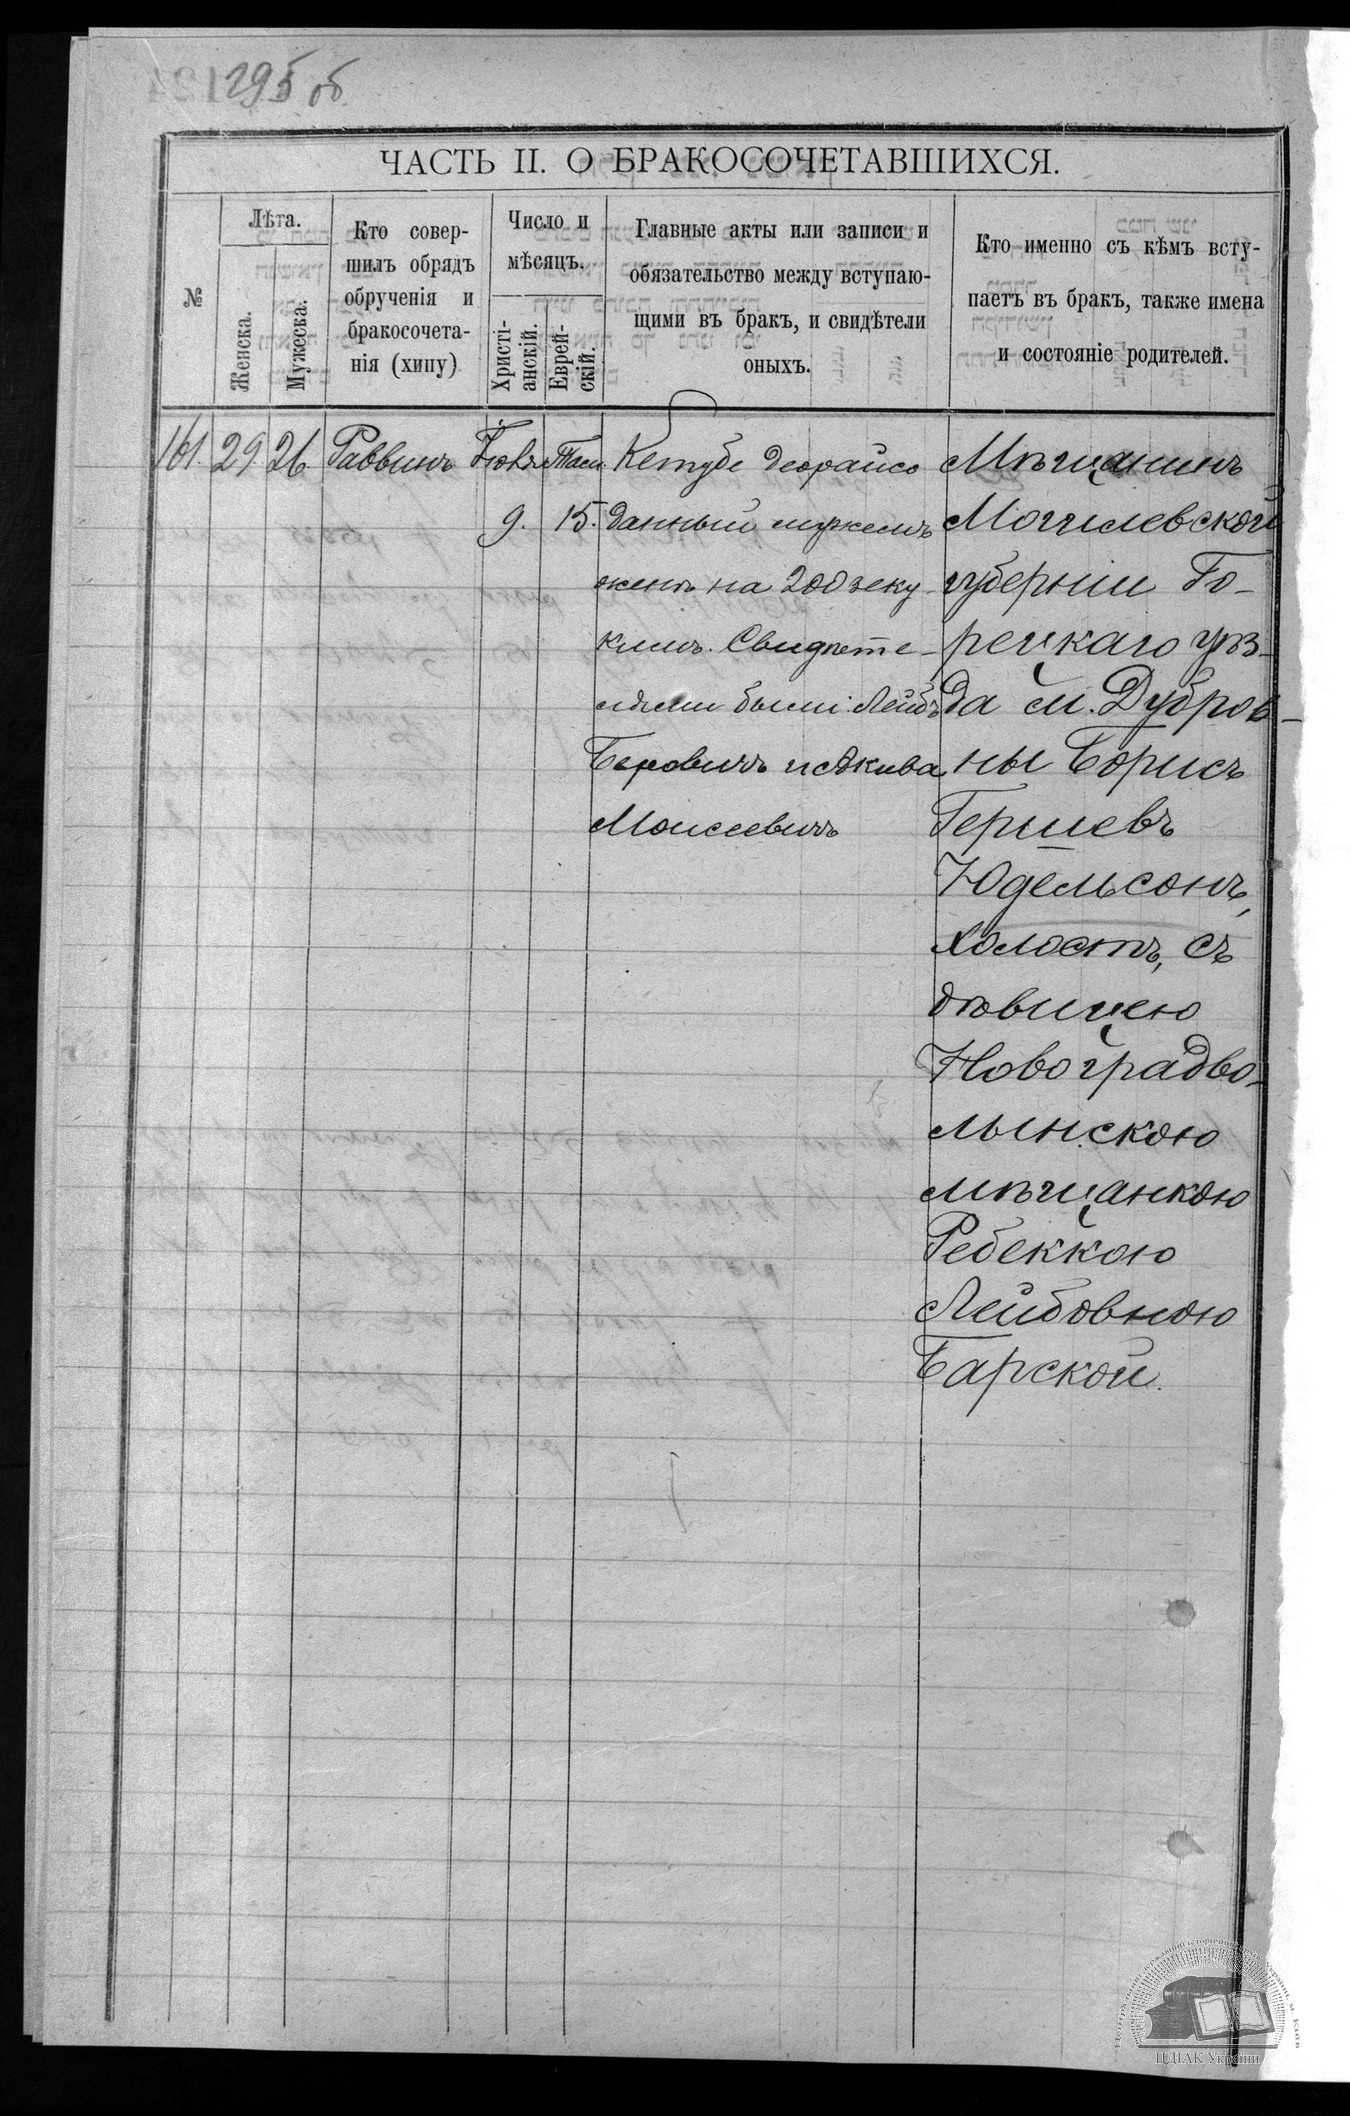 295 об.
ЧАСТЬ II. О БРАКОСОЧЕТАВШИХСЯ.
№
Лѣта.
Женска.
Мужеска.
Кто совер-
шилъ обрядъ
обрученія и
бракосочета-
нія (хипу)
Число и
мѣсяцъ.
Христі-
анскій.
Еврей-
скій.
Главные акты или записи и
обязательство между вступаю-
щими въ бракъ, и свидѣтели
оныхъ.
Кто именно съ кѣмъ всту-
паетъ въ бракъ, также имена
и состояніе родителей.
161. 29. 26. Раввинъ
9. 15.
Кетубе деорайсо
данный мужемъ
женѣ на 200 зеку
кимъ. Свидѣте-
лями были: Лейбъ
Беровичъ и Акива
Моисеевичъ
Мѣщанинъ
Могилевской
губерніи Го-
рецкаго уѣз-
да м. Дубров-
ны Борисъ
Гершевъ
Юдельсонъ,
холостъ, съ
дѣвицею
Новоградво-
лынскою
мѣщанкою
Ребеккою
Лейбовною
Барской.
ЦДІАК України